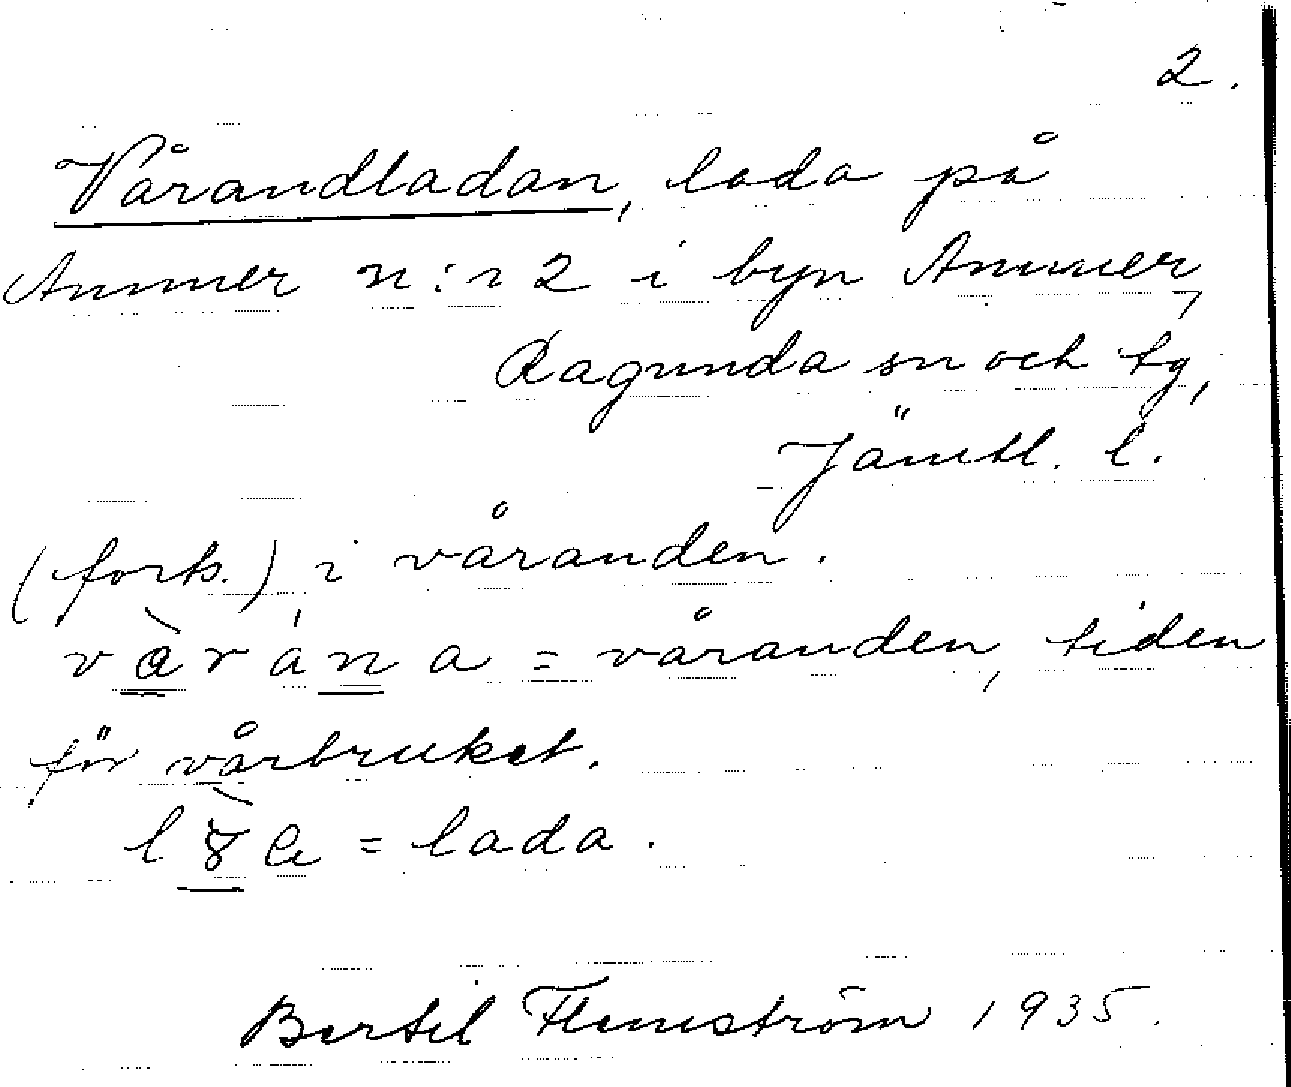 2.
Vårandladan, lada på
Ammer n:r 2 i byn Ammer,
Ragunda sn och tg,
Jämtl. l.
(forts.) i våranden.
v à̱ r á ṉ a = våranden, tiden
för vårbruket.
l = lada.
Bertil Flemström 1935.